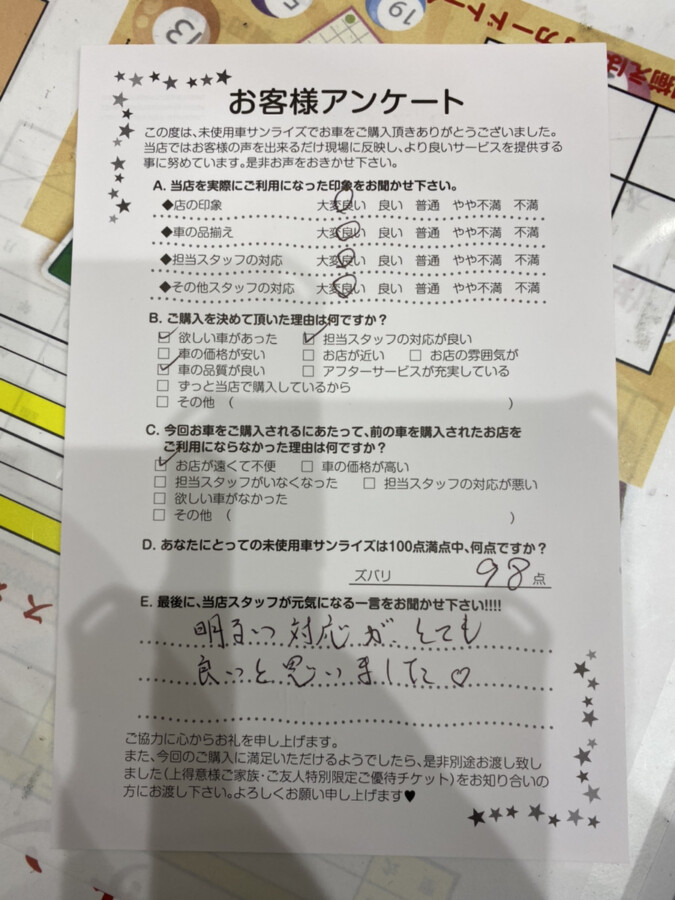 13
5
19
カードトー
揃えは
お客様アンケート
この度は、未使用車サンライズでお車をご購入頂きありがとうございました。
当店ではお客様の声を出来るだけ現場に反映し、より良いサービスを提供する
事に努めています。是非お声をおきかせ下さい。
A. 当店を実際にご利用になった印象をお聞かせ下さい。
◆店の印象 大変良い 良い 普通 やや不満 不満
◆車の品揃え 大変良い 良い 普通 やや不満 不満
◆担当スタッフの対応 大変良い 良い 普通 やや不満 不満
◆その他スタッフの対応 大変良い 良い 普通 やや不満 不満
B. ご購入を決めて頂いた理由は何ですか？
☑ 欲しい車があった ☑ 担当スタッフの対応が良い
□ 車の価格が安い □ お店が近い □ お店の雰囲気が
☑ 車の品質が良い □ アフターサービスが充実している
□ ずっと当店で購入しているから
□ その他 ( )
C. 今回お車をご購入されるにあたって、前の車を購入されたお店を
ご利用にならなかった理由は何ですか？
☑ お店が遠くて不便 □ 車の価格が高い
□ 担当スタッフがいなくなった □ 担当スタッフの対応が悪い
□ 欲しい車がなかった
□ その他 ( )
D. あなたにとっての未使用車サンライズは100点満点中、何点ですか？
ズバリ 98 点
E. 最後に、当店スタッフが元気になる一言をお聞かせ下さい!!!!
明るい対応が、とても
良いと思いました♡
ご協力に心からお礼を申し上げます。
また、今回のご購入に満足いただけるようでしたら、是非別途お渡し致し
ました(上得意様ご家族・ご友人特別限定ご優待チケット)をお知り合いの
方にお渡し下さい。よろしくお願い申し上げます♥